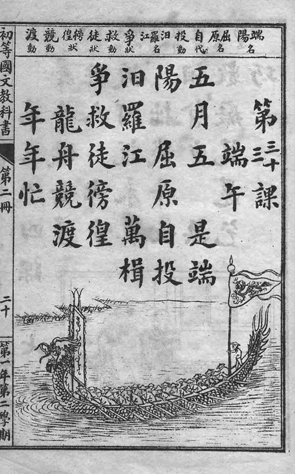 端陽名
屈原名
自代
投動
汨羅江名
爭狀
救動
徒狀
徬徨狀
競動
渡動
第三十課
端午
五月五 是端
陽 屈原自投
汨羅江 萬楫
爭救徒徬徨
龍舟競渡
年年忙
初等國文教科書
第二冊
二十
第一年第二學期